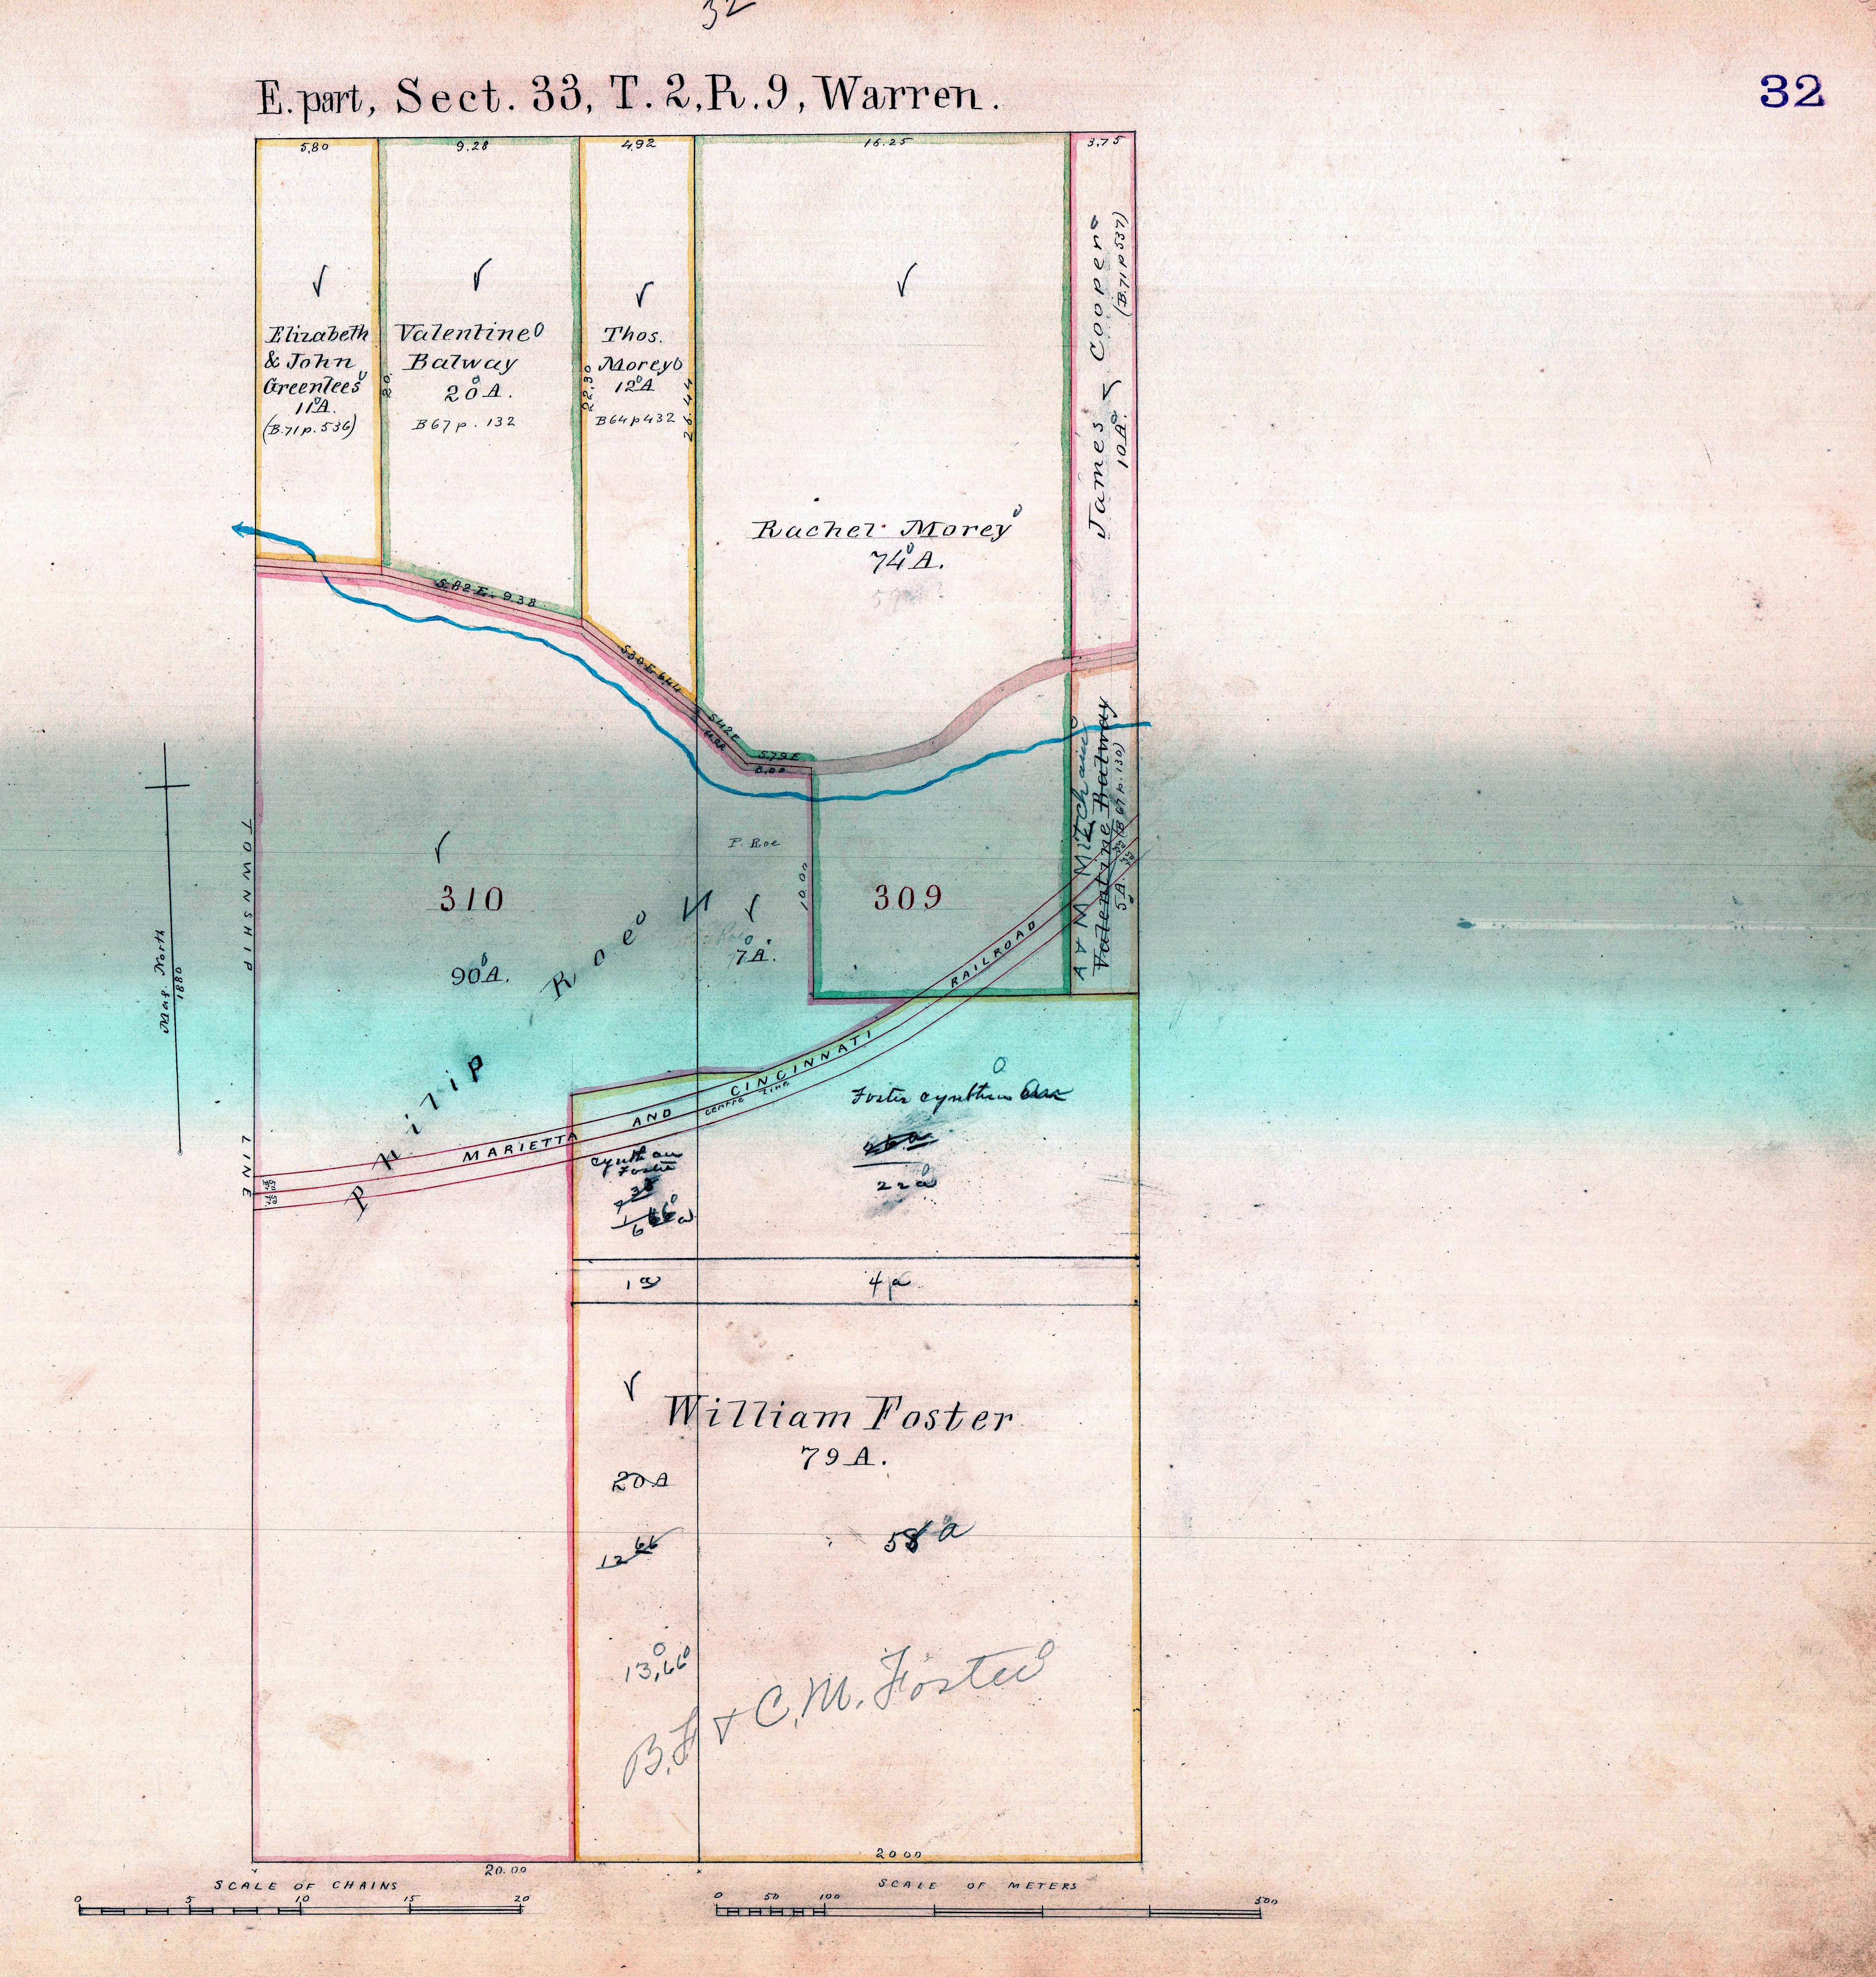 32
E. part, Sect. 33, T. 2, R. 9, Warren.
32
5.80
9.28
4.92
16.25
3.75
Elizabeth
& John
Greenlees
11 A.
(B. 71 p. 536)
Valentine
Balway
20 A.
B 67 p. 132
22.30
Thos.
Morey
12 A
B 64 p 432
26.44
Rachel Morey
74 A.
James Cooper
10 A.
(B. 71 p 537)
S. 82 E. 9.38
S 30 E 6.44
S 42 E
S 79 E
3.00
P. Roe
310
90 A.
7 A.
10.00
309
A & M Mitcham
Valentine Balway
5 A. (B 67 p. 130)
Philip Roe
Mag. North
1880
TOWNSHIP LINE
MARIETTA AND CINCINNATI RAILROAD
CENTRE LINE
Foster Cynthia
22 a
Cynthia
Foster
1 a
4 a
William Foster
79 A.
20 A
12 66
58 a
13,66
B. F & C. M. Foster
20.00
2000
SCALE OF CHAINS
0 5 10 15 20
SCALE OF METERS
0 50 100 500